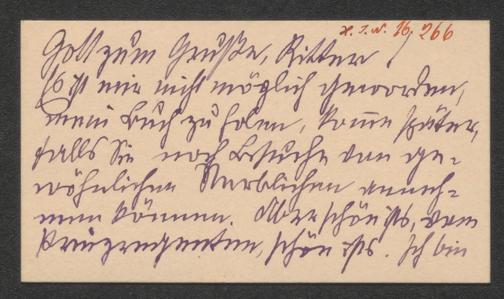 H. I. N. 16,266
Gott zum Gruße, Ritter!
Es ist mir nicht möglich geworden,
mein Buch zu holen, komme später,
falls Sie noch Besuche von ge-
wöhnlichen Sterblichen anneh-
men können. Aber schön ists, vom
Prinzregenten, schön ists. Ich bin